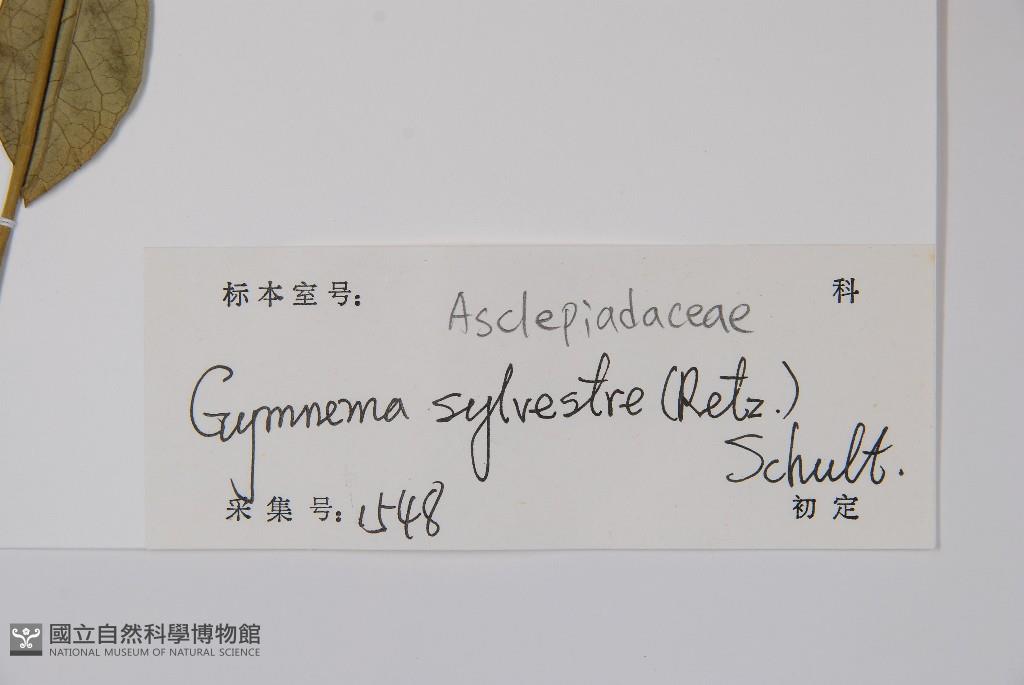 标本室号： 科
Asclepiadaceae
Gymnema sylvestre (Retz.)
Schult.
采集号：1548 初定
國立自然科學博物館
NATIONAL MUSEUM OF NATURAL SCIENCE